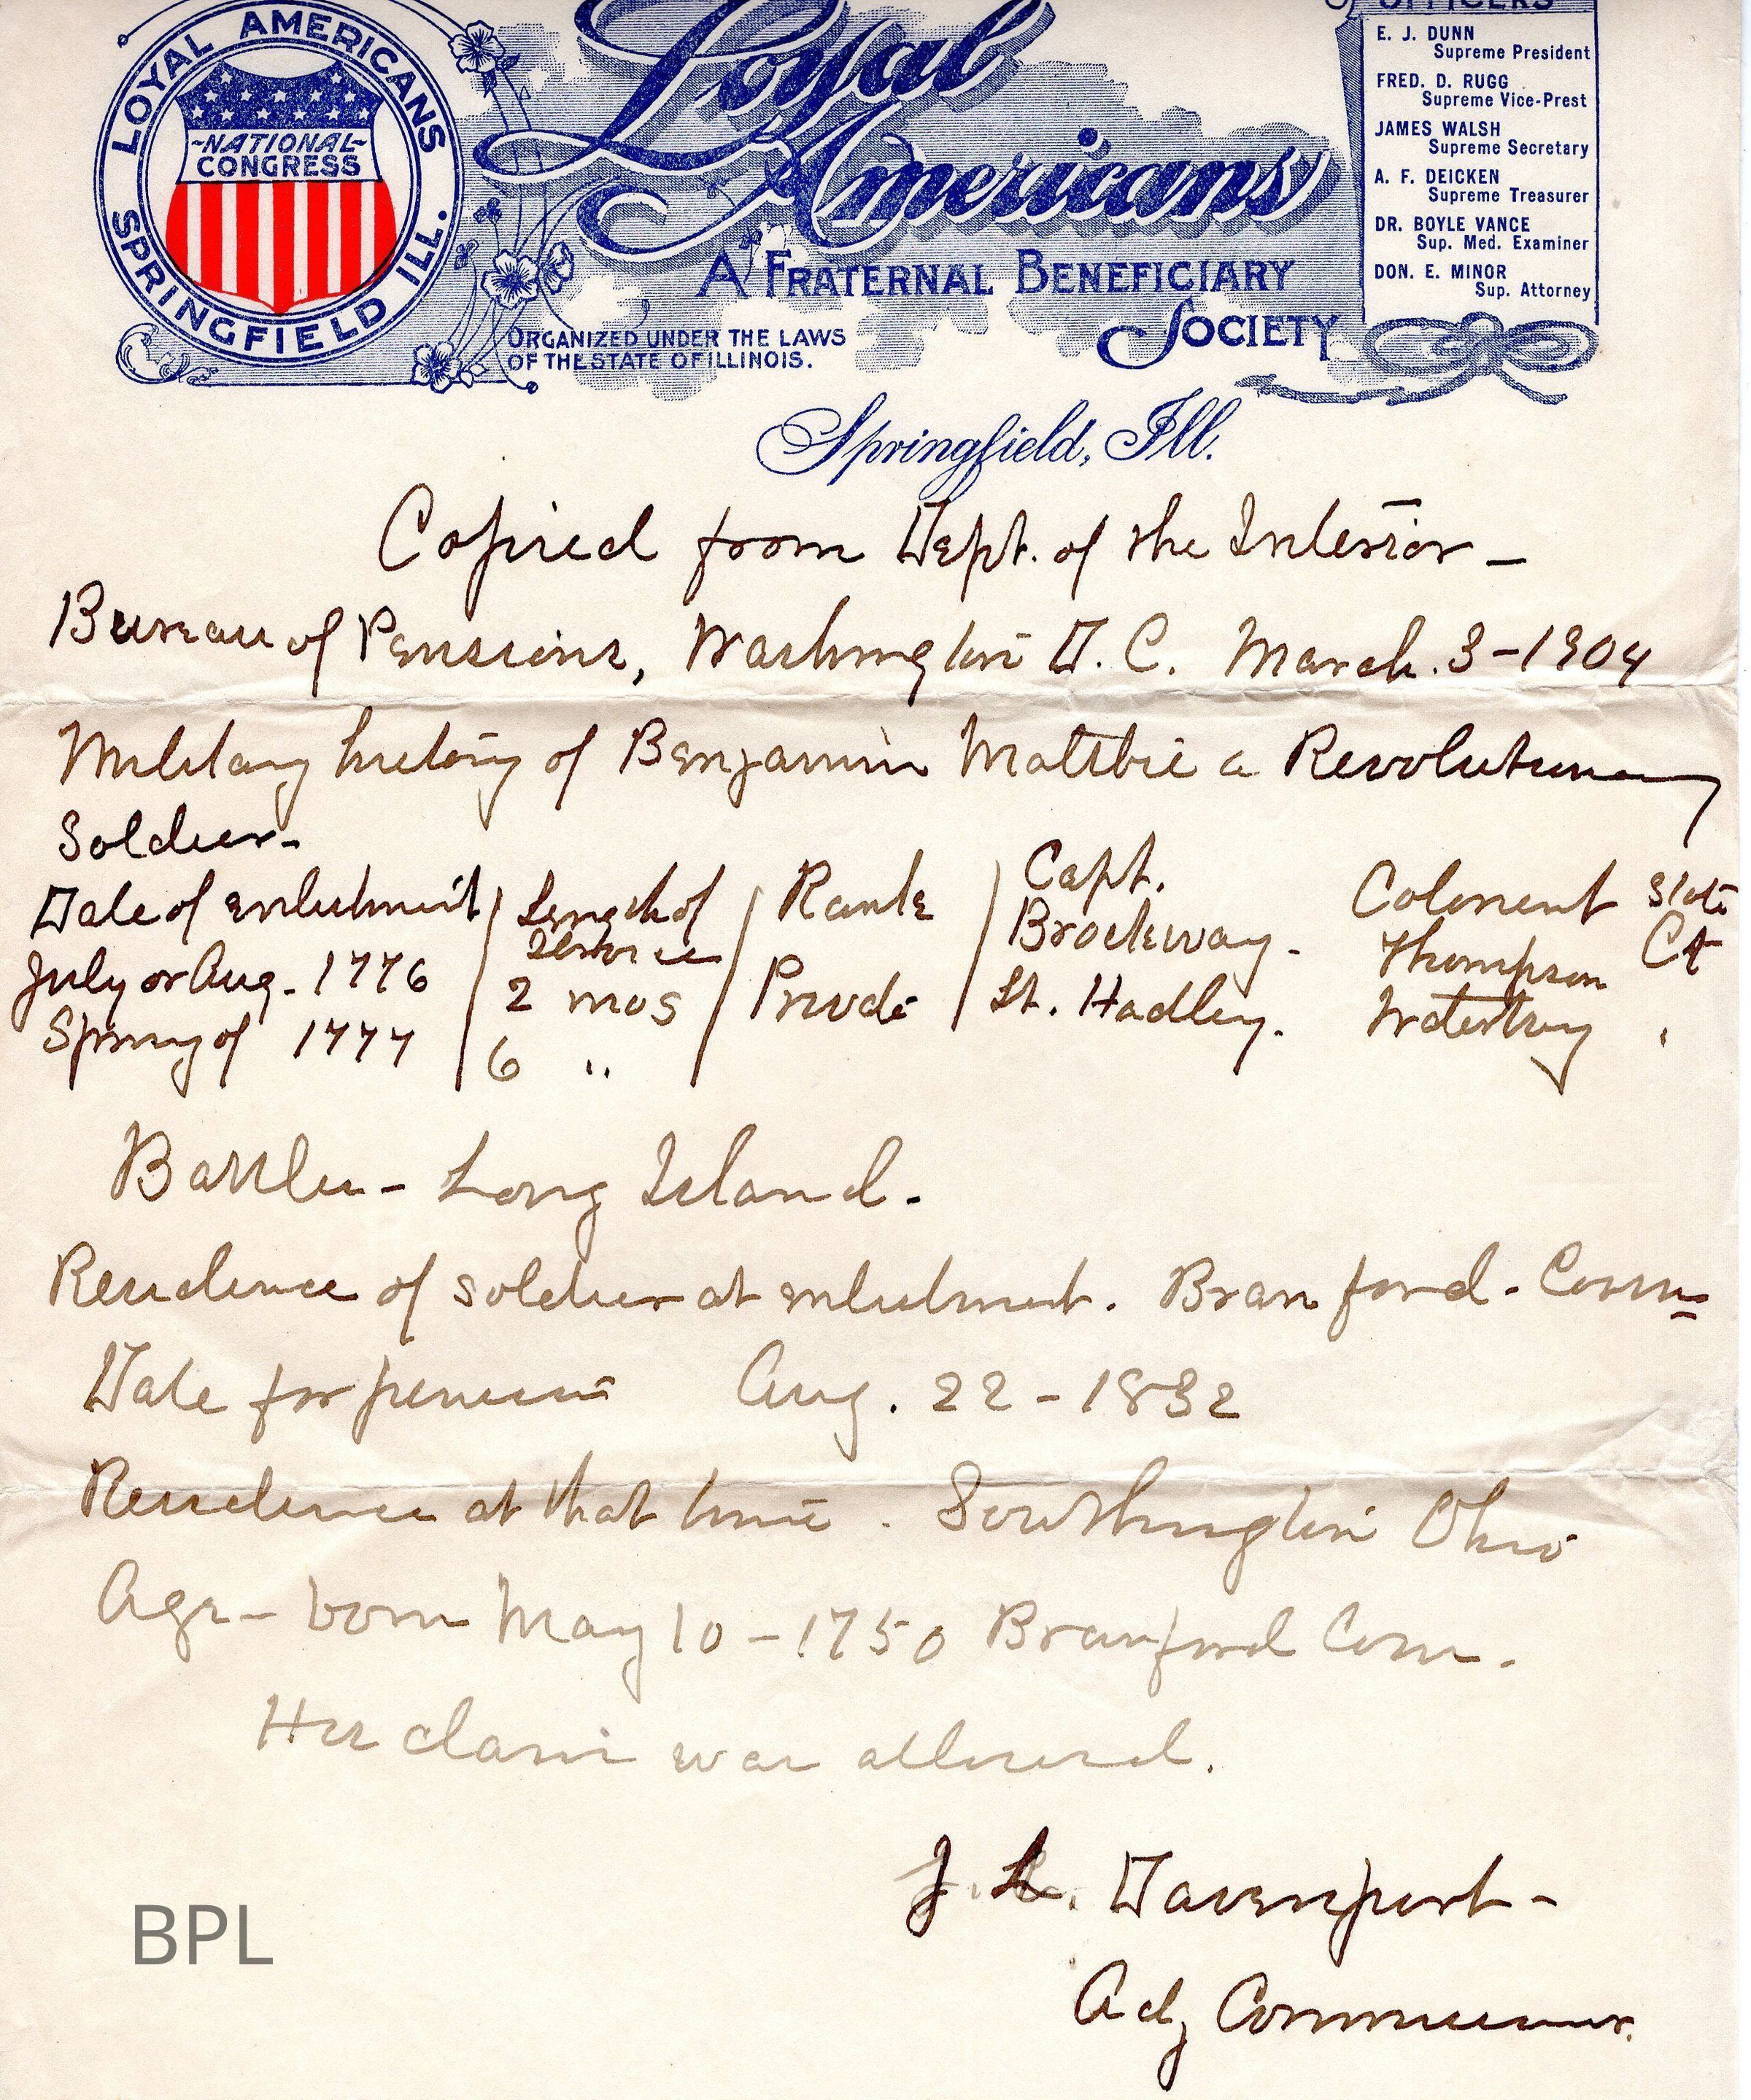 LOYAL AMERICANS
~NATIONAL~
CONGRESS
SPRINGFIELD ILL.
Loyal
Americans
A FRATERNAL BENEFICIARY
SOCIETY
ORGANIZED UNDER THE LAWS
OF THE STATE OF ILLINOIS.
OFFICERS
E. J. DUNN
Supreme President
FRED. D. RUGG
Supreme Vice-Prest
JAMES WALSH
Supreme Secretary
A. F. DEICKEN
Supreme Treasurer
DR. BOYLE VANCE
Sup. Med. Examiner
DON. E. MINOR
Sup. Attorney
Springfield, Ill.
Copied from Dept. of the Interior -
Bureau of Pensions, Washington D. C. March. 3-1904
Military history of Benjamin Maltbie a Revolutionary
Soldier-
Date of enlistment / Length of Service / Rank / Capt. Colonel State
July or Aug. 1776 / 2 mos / Private / Brockway. Thompson Ct
Spring of 1777 / 6 " / Lt. Hadley.
Battles - Long Island.
Residence of soldier at enlistment. Branford. Conn
Date for pension Aug. 22-1832
Residence at that time. Southington Ohio
Age - born May 10-1750 Branford Conn.
His claim was allowed.
J. L. Davenport-
Commissioner.
BPL